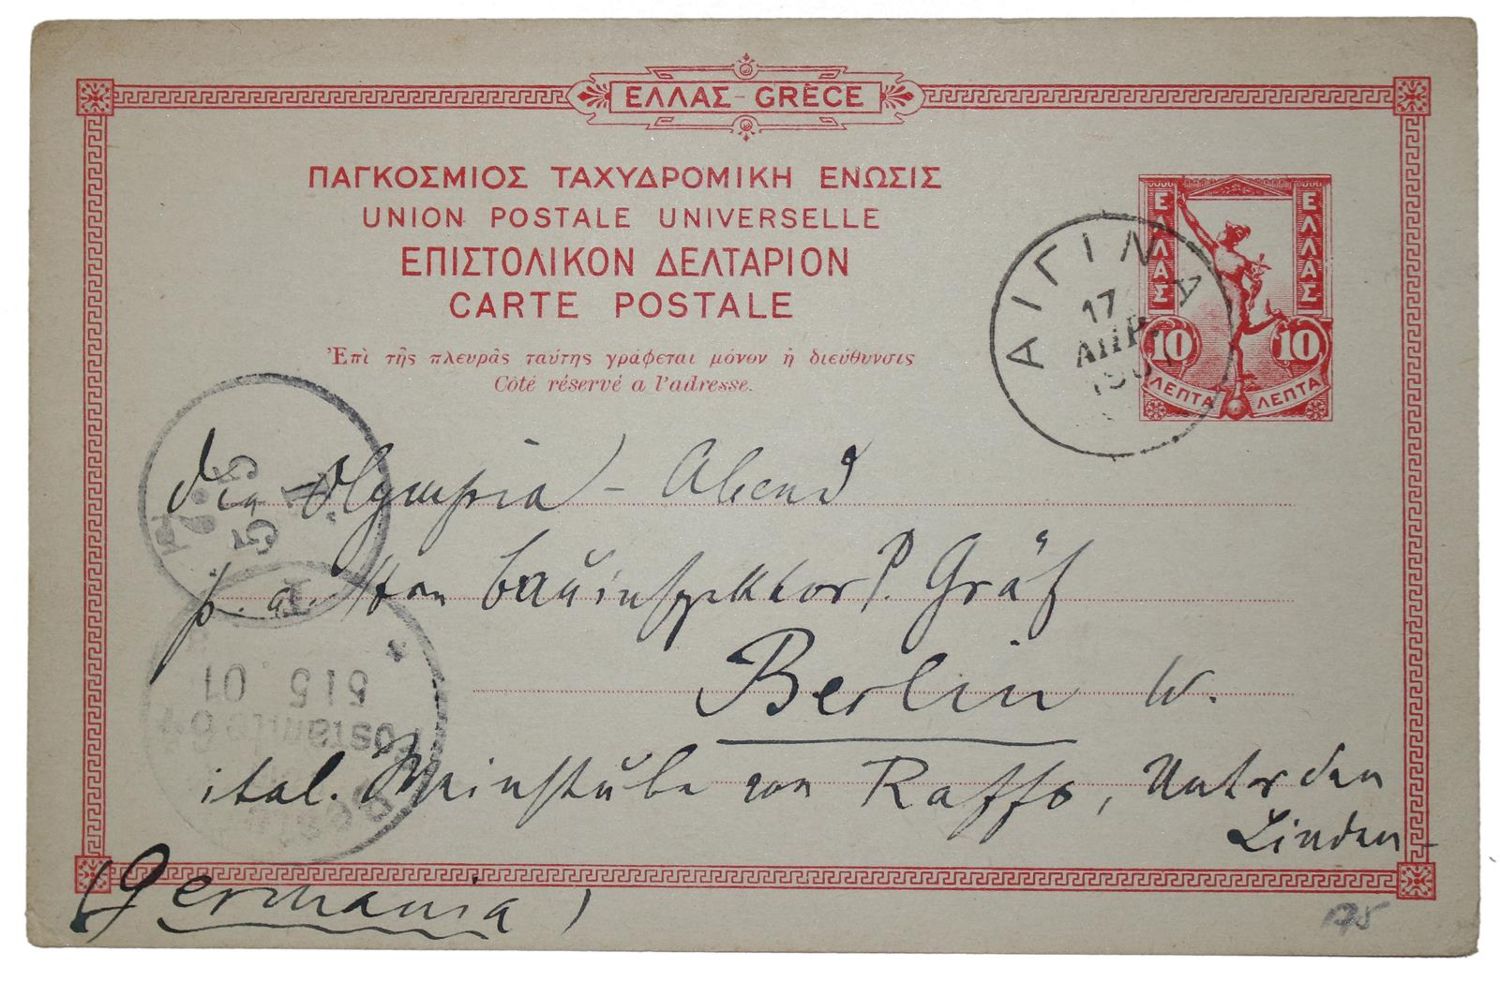 ΕΛΛΑΣ - GRÈCE
ΠΑΓΚΟΣΜΙΟΣ ΤΑΧΥΔΡΟΜΙΚΗ ΕΝΩΣΙΣ
UNION POSTALE UNIVERSELLE
ΕΠΙΣΤΟΛΙΚΟΝ ΔΕΛΤΑΡΙΟΝ
CARTE POSTALE
Ἐπὶ τῆς πλευρᾶς ταύτης γράφεται μόνον ἡ διεύθυνσις
Côté réservé a l'adresse.
ΕΛΛΑΣ
ΕΛΛΑΣ
10
10
ΛΕΠΤΑ
ΛΕΠΤΑ
ΑΙΓΙΝΑ
17
ΑΠΡ
Olympia - Abend
p. a. Herrn Bauinspektor P. Gräf
Berlin W.
ital. Weinstube von Raffo, Unter den
Linden
(Germania)
5 1 5 01
175